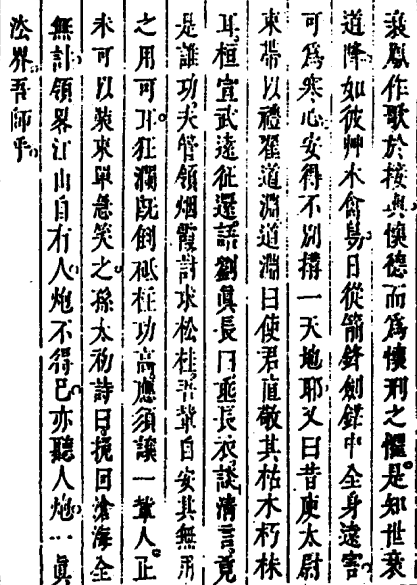 衰鳳作歌於接輿懷德而爲懷刑之懼是知世衰
道降如彼艸木禽鳥日從箭鋒劍鋩中全身遠害
可爲寒心安得不別搆一天地耶又曰昔庾太尉
束帶以禮翟道淵道淵曰使君直敬其枯木朽株
耳桓宣武遠征還語劉眞長曰垂長衣談清言竟
是誰功夫管領烟霞討求松桂吾輩自安其無用
之用可耳狂瀾旣倒砥柱功高應須讓一輩人正
未可以裝束單急笑之孫太初詩曰挽回滄海全
無計領畧江山自有人炮不得已亦聽人炮眞
法界吾師乎